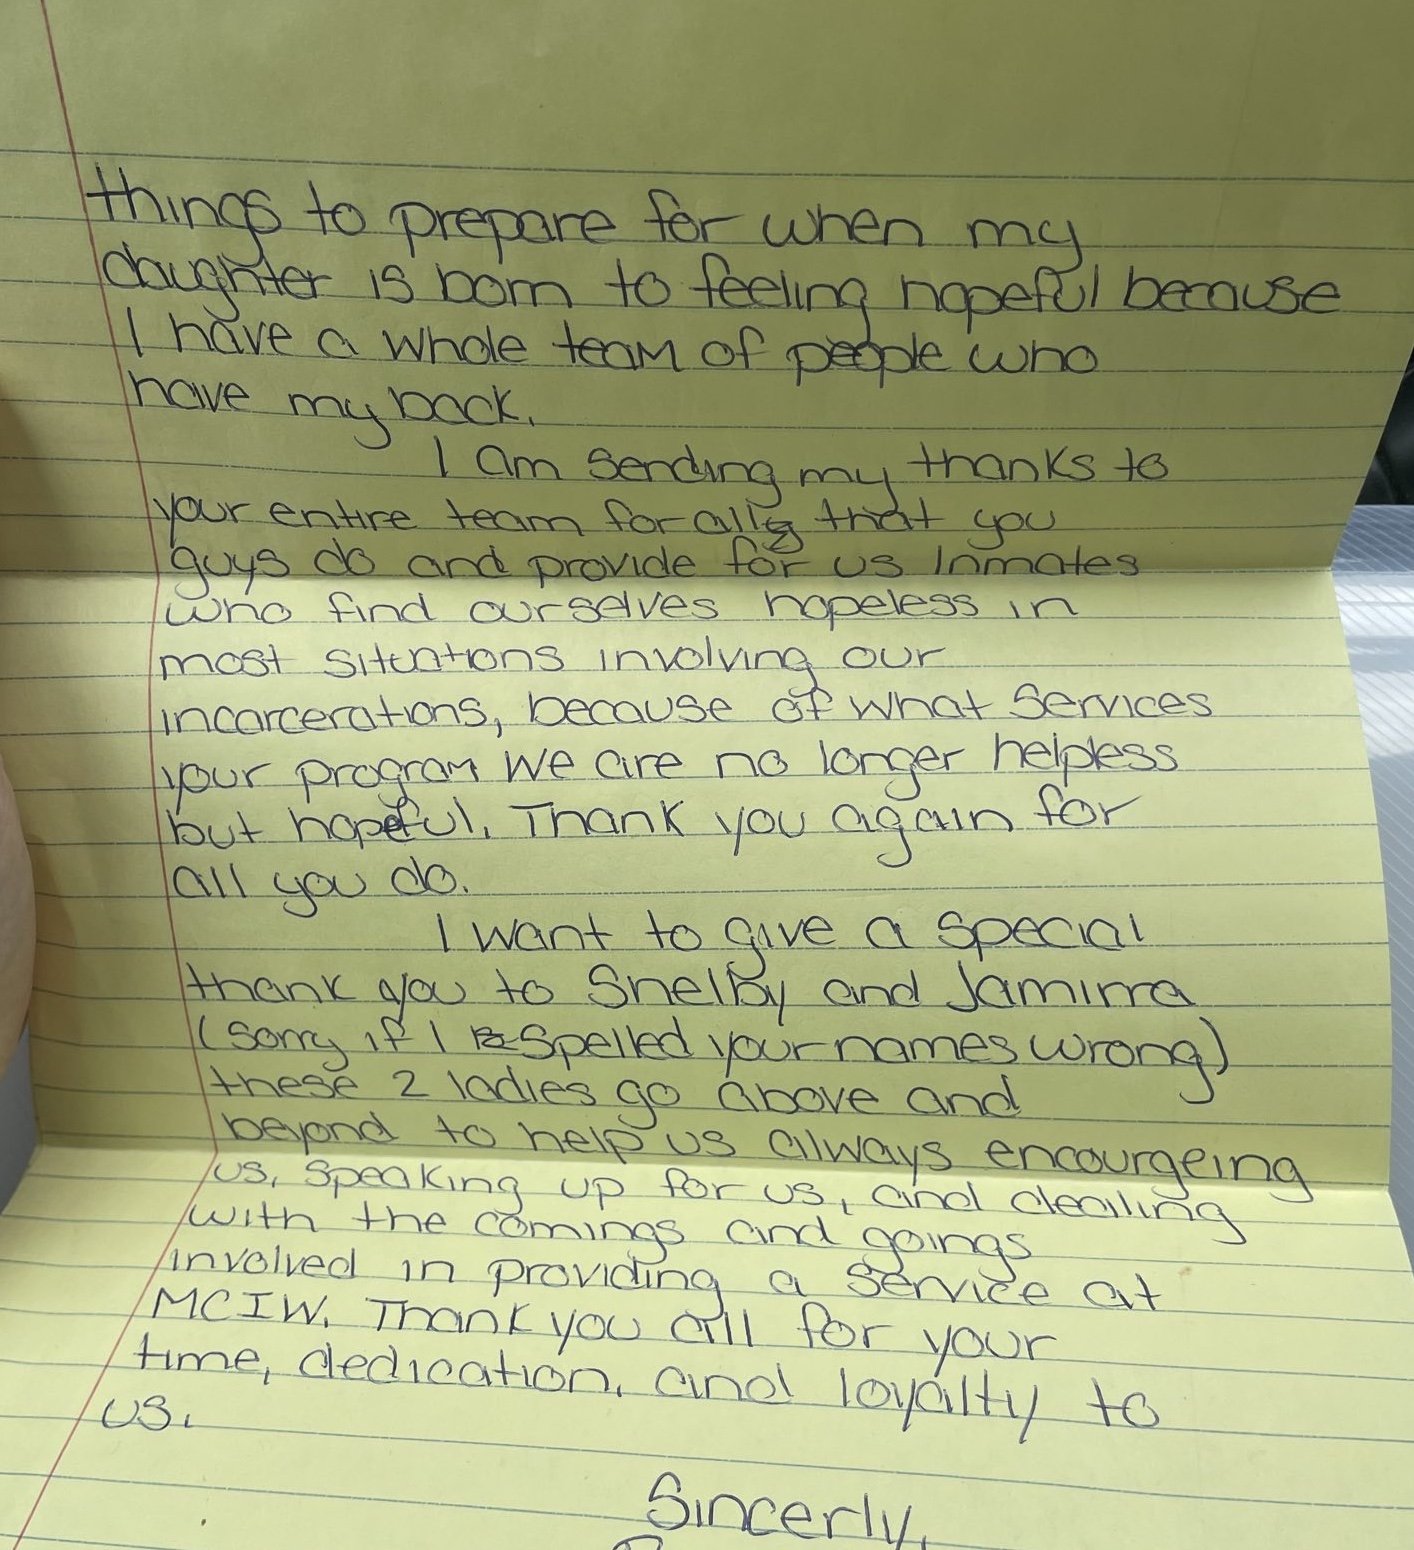 things to prepare for when my
daughter is born to feeling hopeful because
I have a whole team of people who
have my back.
I am sending my thanks to
your entire team for all that you
guys do and provide for us Inmates
who find ourselves hopeless in
most situations involving our
incarcerations, because of what services
your program we are no longer helpless
but hopeful. Thank you again for
all you do.
I want to give a special
thank you to Shelby and Jamirra
(sorry if I spelled your names wrong)
these 2 ladies go above and
beyond to help us always encourgeing
us, speaking up for us, and dealing
with the comings and goings
involved in providing a service at
MCIW. Thank you all for your
time, dedication, and loyalty to
us.
Sincerly,